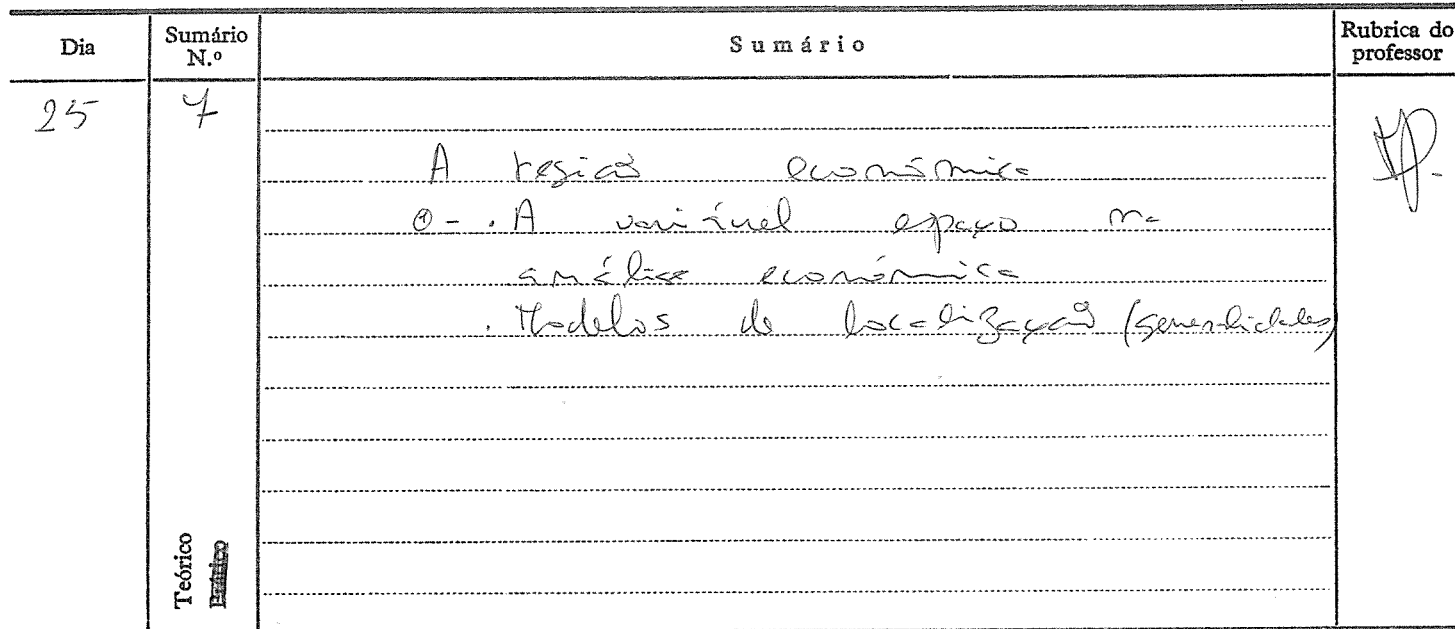 Dia
Sumário N.º
Sumário
Rubrica do professor
25
7
A região económica
0 - . A variável espaço na
análise económica
. Modelos de localização (generalidades)
Teórico
Prático